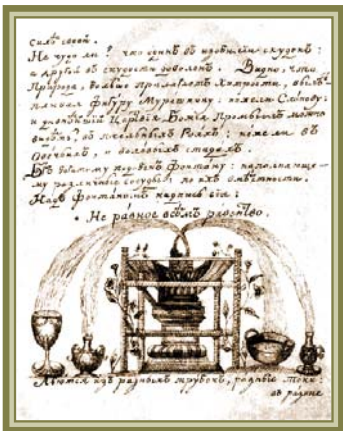 силѣ своей.
Не чудо ли? что один в изобилии скуден:
а другой в скудости доволен. Видно, что
Природа, больше прилагает Хитрости, выклѣ-
пливая Фигуру Мурашкину: нежели Слонову:
и Царствия Божия Промысл можно
видѣть, в пчелиных Роях: нежели в
Овечьих, и воловых стадах.
Бг богатому подобен Фонтану: наполняюще-
му различные сосуды, по их вмѣстности.
Над Фонтаном надпись сия:
Не равное всѣм равенство.
Льются из разных трубок, разные токи:
в разные